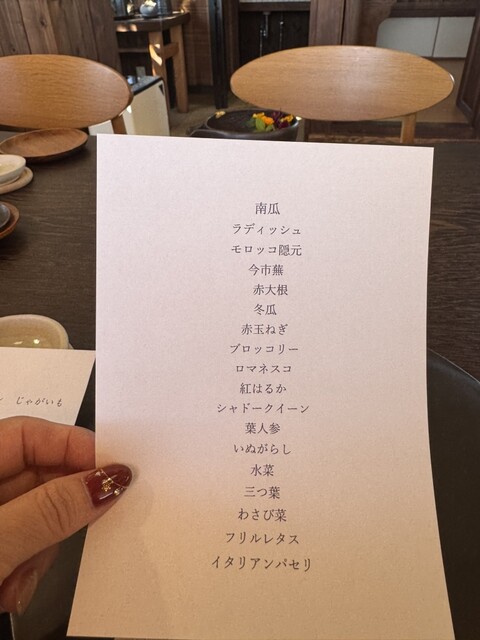 南瓜
ラディッシュ
モロッコ隠元
今市蕪
赤大根
冬瓜
赤玉ねぎ
ブロッコリー
ロマネスコ
紅はるか
シャドークイーン
葉人参
いぬがらし
水菜
三つ葉
わさび菜
フリルレタス
イタリアンパセリ
じゃがいも